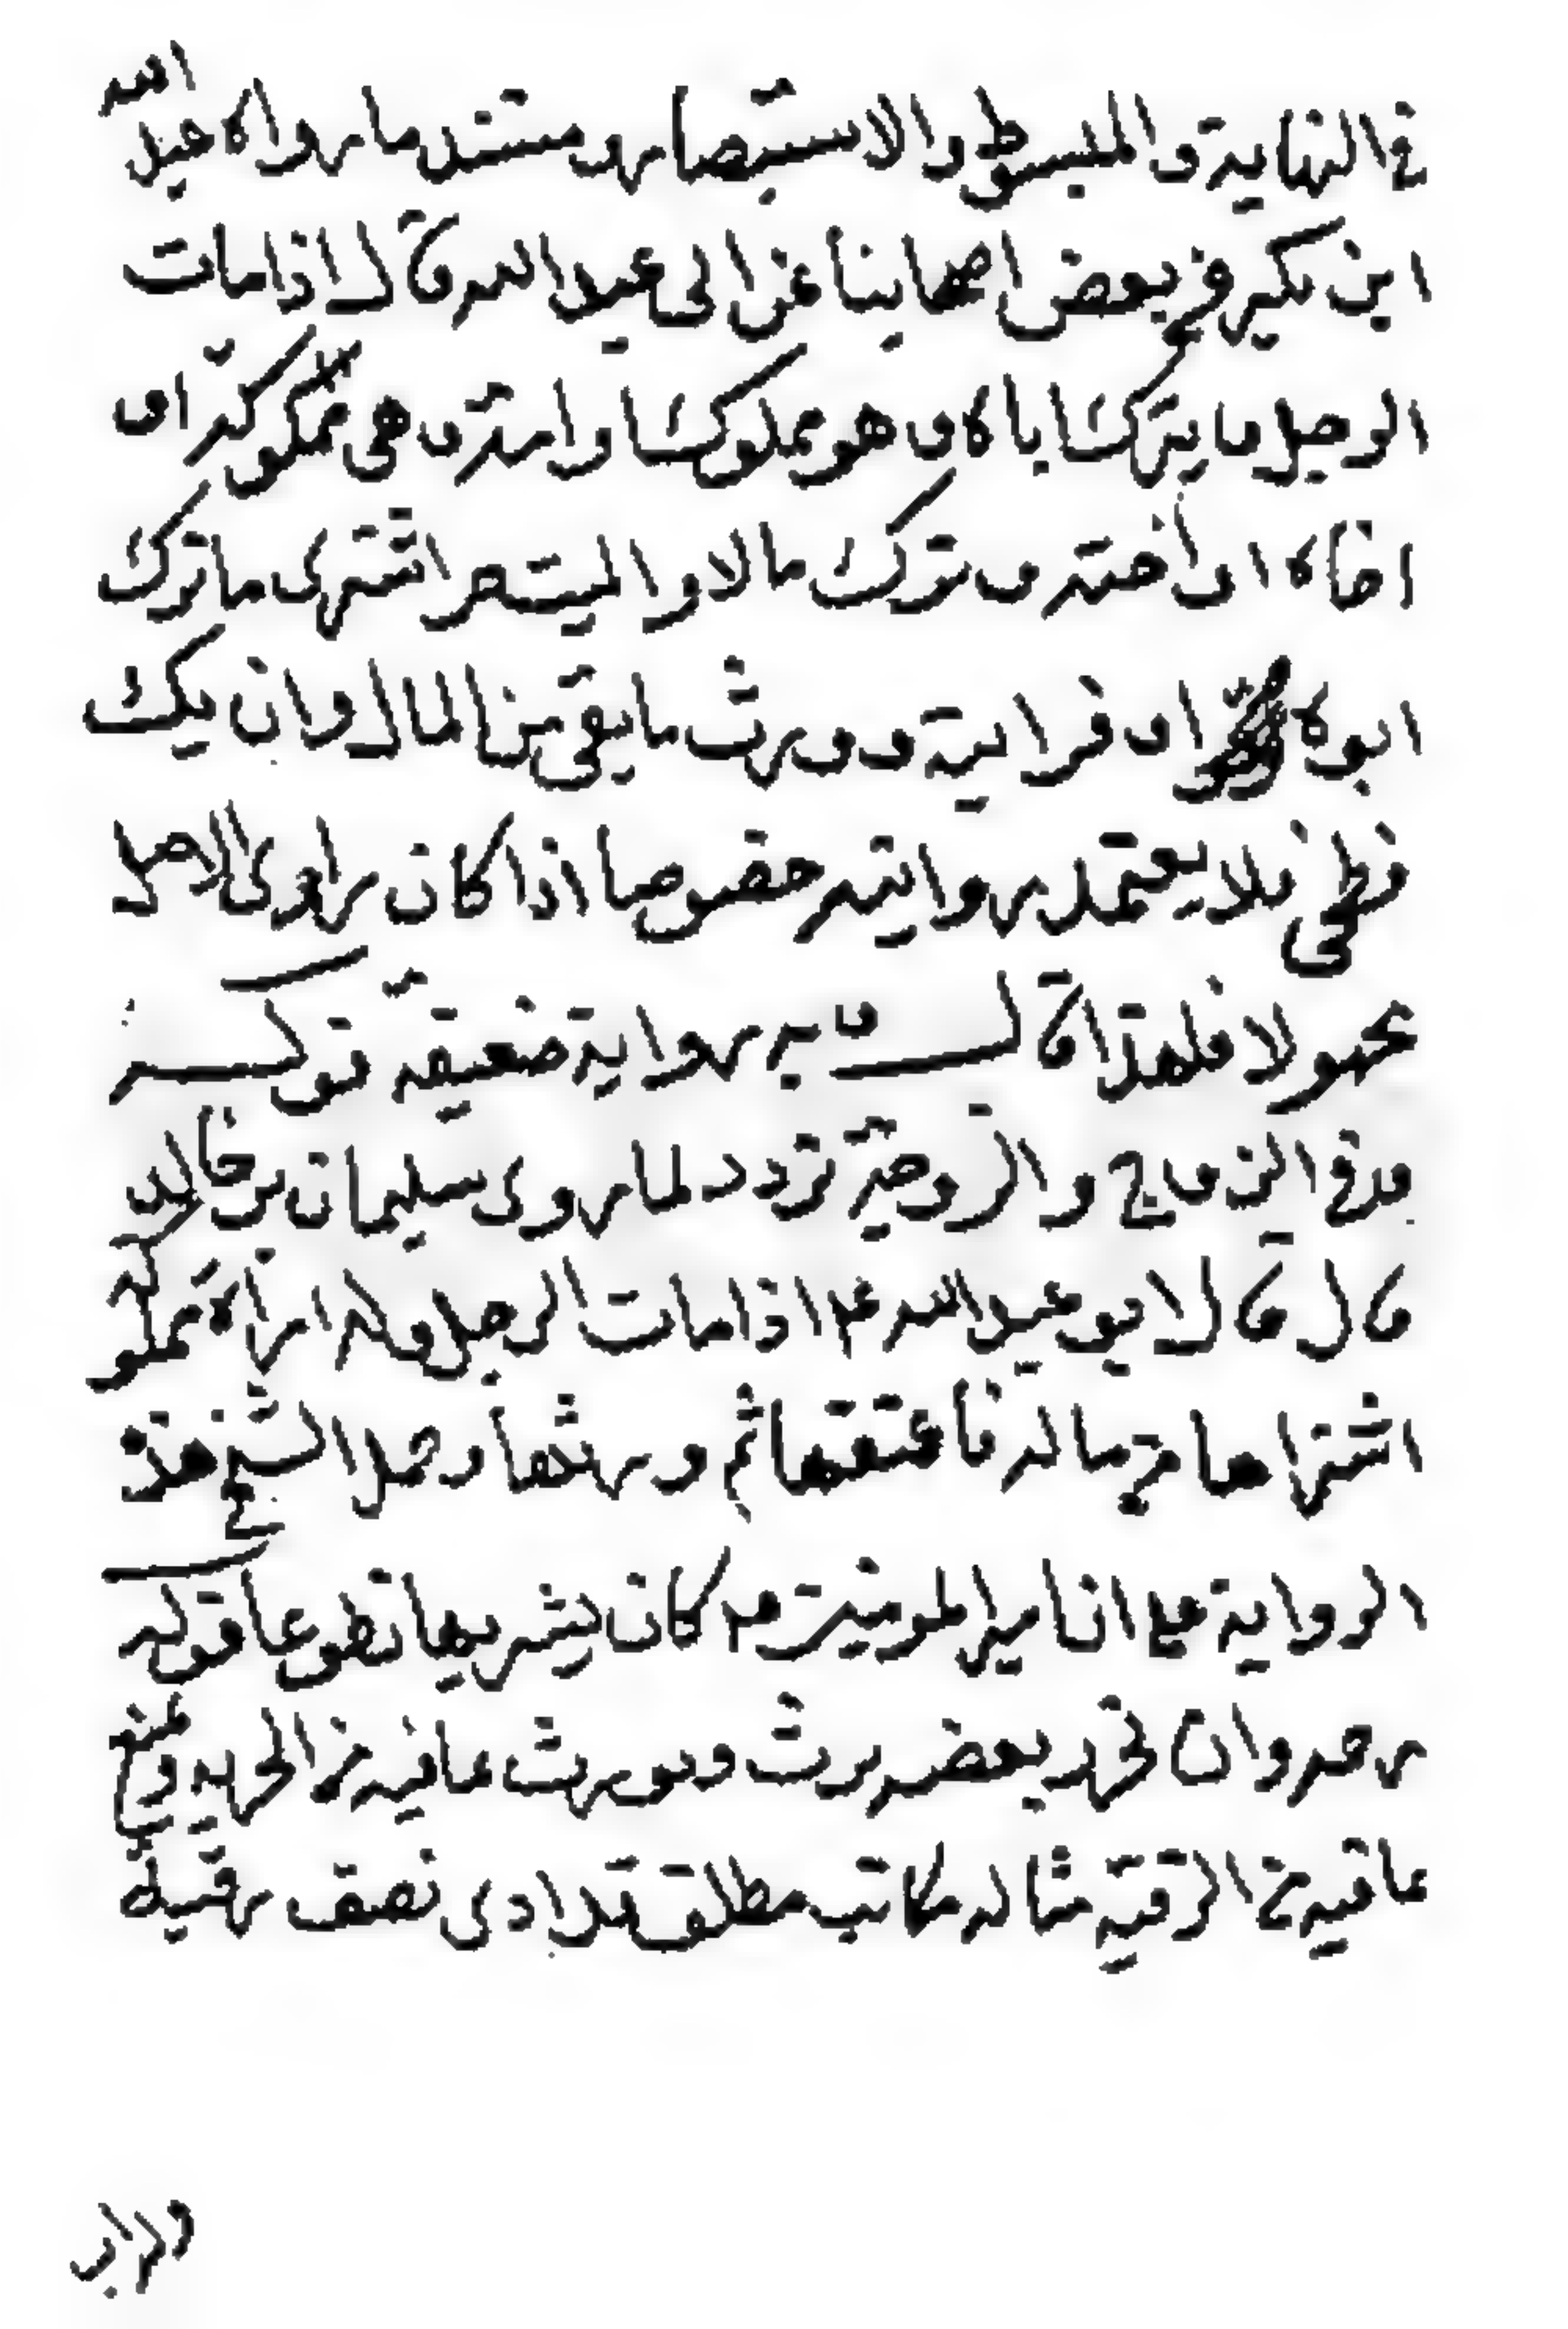 في النهاية و المبسوط و الاستبصار و مستند ما رواه عبد الله
ابن بكير في بعض اصحابنا عن ابى عبد الله قال اذا مات
الرجل و يترك اباه و هو مملوك او امته و هى مملوكة او
اخاه او أخته و ترك مالا و الميت حر اشترى ما ترك
ابوه او قرابة و ورث ما بقى من المال و ان بكير
فطحى فلا يعتمد روايته خصوصا اذا كان راوى الاصل
مجهولا فلهذا قال المص به رواية ضعيفة قوله
و في الزوج و الزوجة تردد لما روى سليمان بن خالد
قال قال ابو عبد الله ع اذا مات الرجل و له امرأة مملوكة
اشتراها من ماله فأعتقها ثم ورثها و حمل الشيخ هذه
الرواية على ان امير المومنين ع كان يشتريها تطوعا قوله
ره و ان تحرر بعضه يرث و يورث بما فيه من الحرية و يمنع
بما فيه من الرقية مثاله مكاتب مطلق قد ادى نصف رقبته